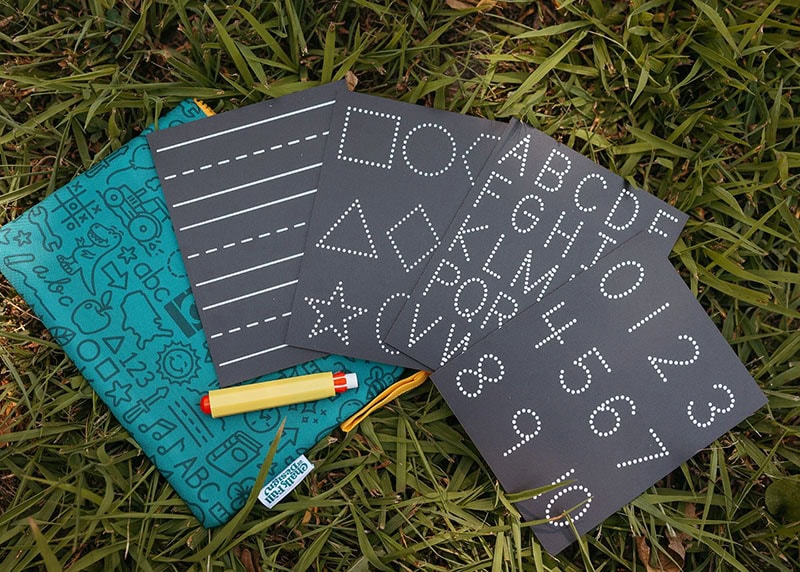 abc
abc
123
ABC
Chalk Full
A B C D E
F G H I
K L M
P Q R
V W
0 1 2 3
4 5 6 7
8 9 10